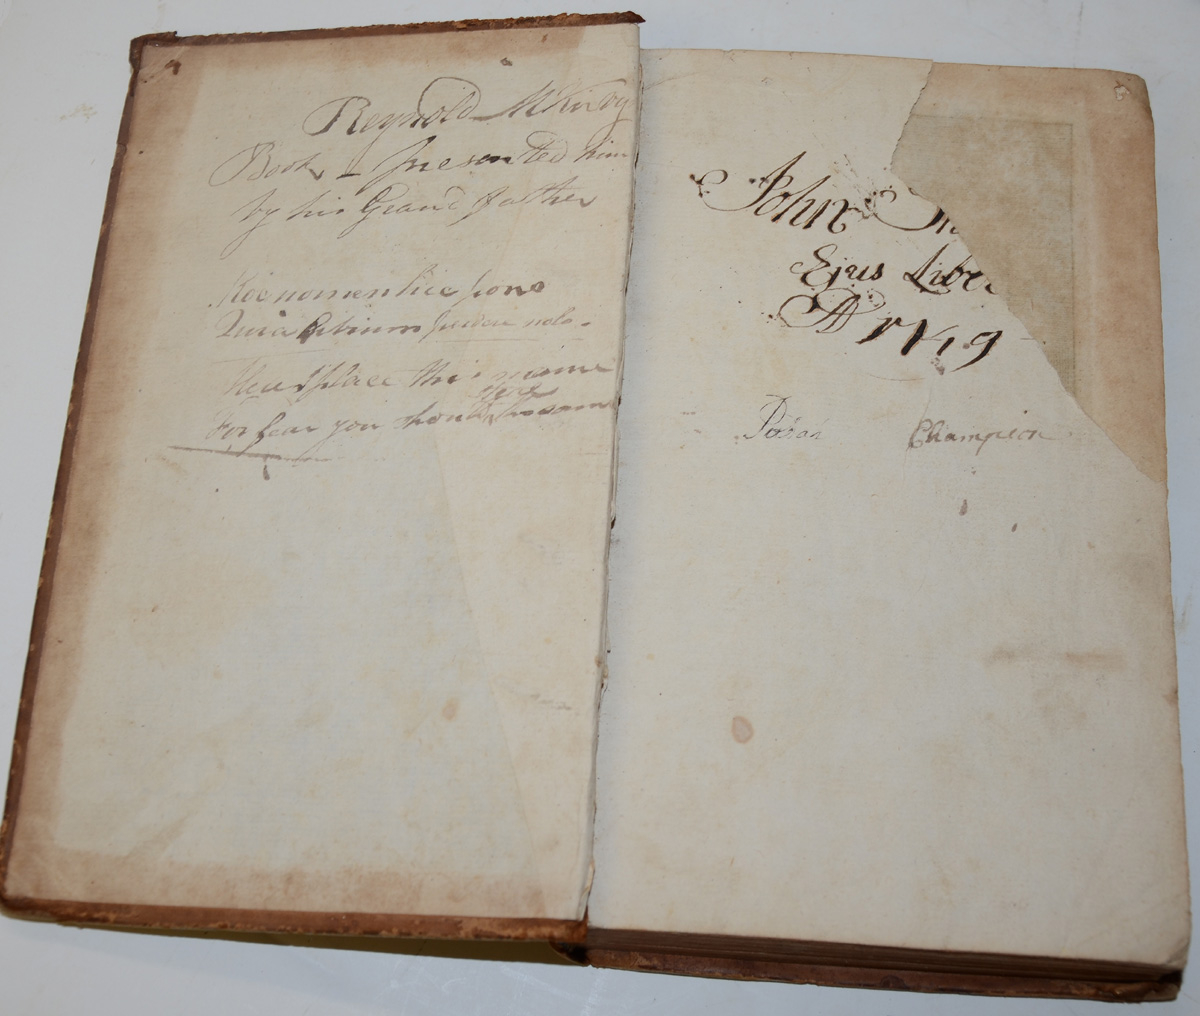 Reynold M Kirby
Book - presented him
by his Grand father
Hoc nomen hic pono
Quia librum perdere nolo.
Here I place this name
For fear you should the same
John
Ejus Libe
AD 1749
Champion